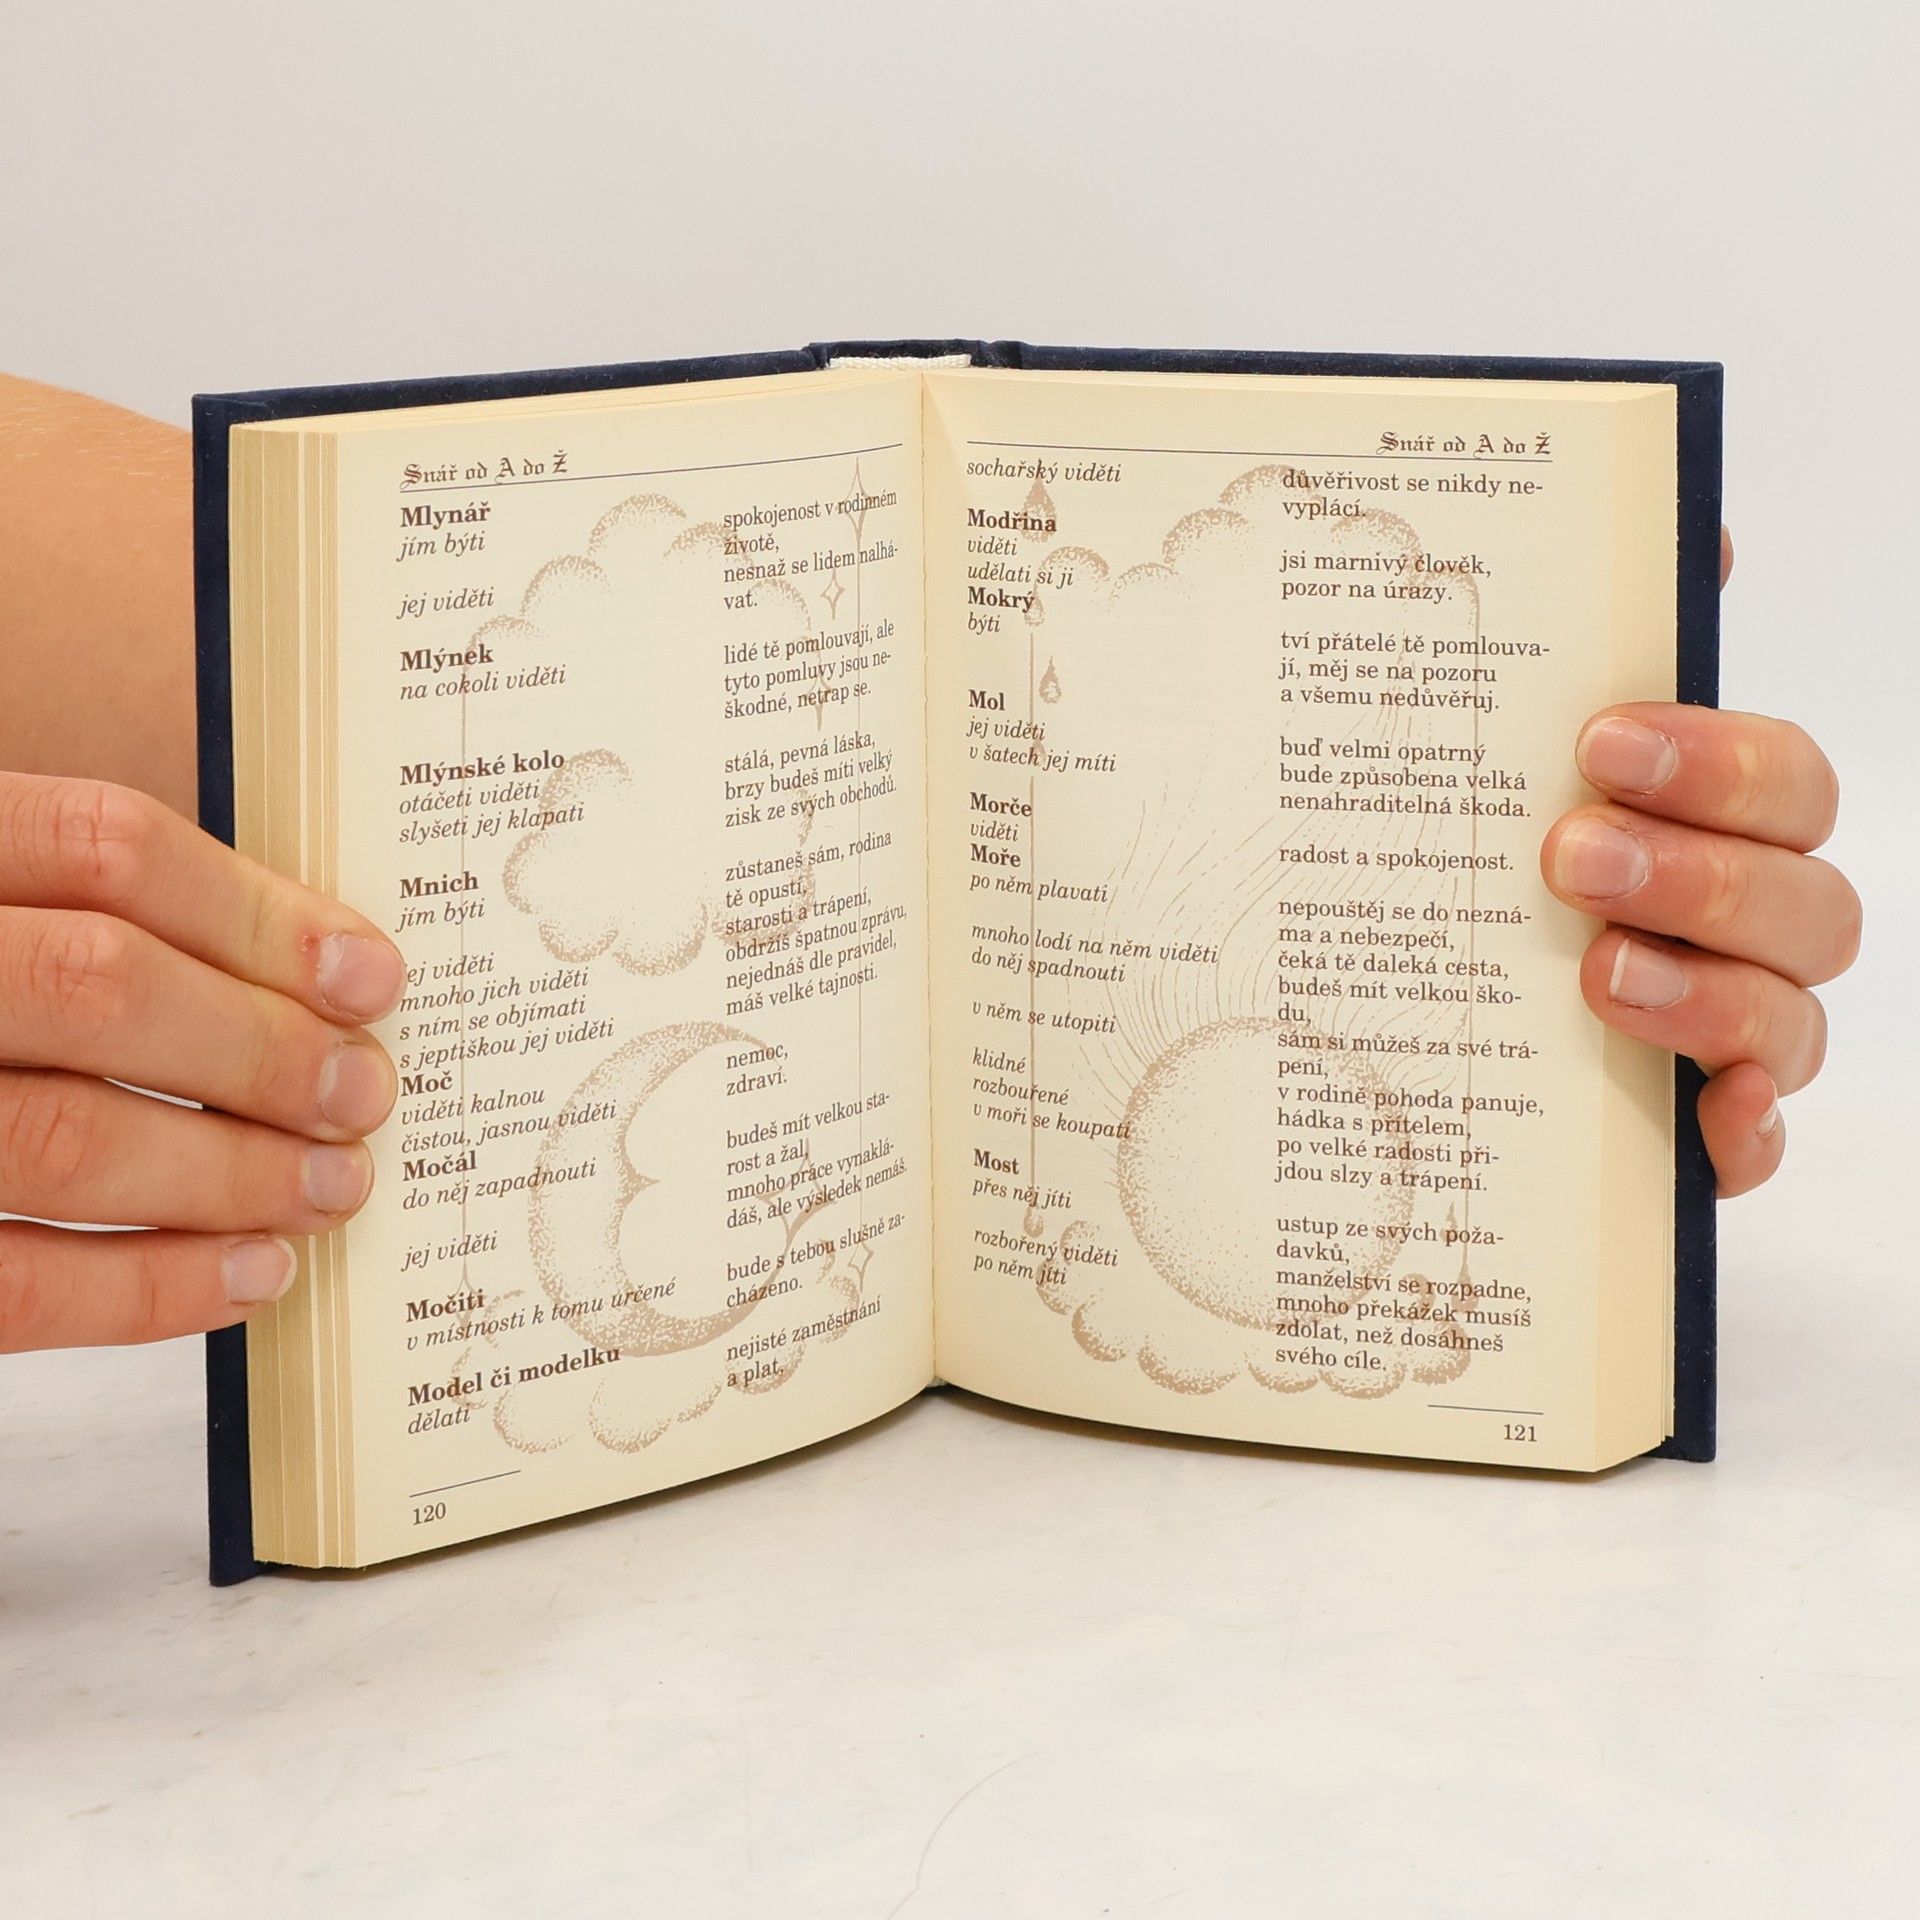 Snář od A do Ž
Mlynář
jím býti
jej viděti
Mlýnek
na cokoli viděti
Mlýnské kolo
otáčeti viděti
slyšeti jej klapati
Mnich
jím býti
jej viděti
mnoho jich viděti
s ním se objímati
s jeptiškou jej viděti
Moč
viděti kalnou
čistou, jasnou viděti
Močál
do něj zapadnouti
jej viděti
Močiti
v místnosti k tomu určené
Model či modelku
dělati
spokojenost v rodinném
životě,
nesnaž se lidem nalhá-
vat.
lidé tě pomlouvají, ale
tyto pomluvy jsou ne-
škodné, netrap se.
stálá, pevná láska,
brzy budeš míti velký
zisk ze svých obchodů.
zůstaneš sám, rodina
tě opustí,
starosti a trápení,
obdržíš špatnou zprávu,
nejednáš dle pravidel,
máš velké tajnosti.
nemoc,
zdraví.
budeš mít velkou sta-
rost a žal,
mnoho práce vynaklá-
dáš, ale výsledek nemáš.
bude s tebou slušně za-
cházeno.
nejisté zaměstnání
a plat,
120
Snář od A do Ž
sochařský viděti
Modřina
viděti
udělati si ji
Mokrý
býti
Mol
jej viděti
v šatech jej míti
Morče
viděti
Moře
po něm plavati
mnoho lodí na něm viděti
do něj spadnouti
v něm se utopiti
klidné
rozbouřené
v moři se koupati
Most
přes něj jíti
rozbořený viděti
po něm jíti
důvěřivost se nikdy ne-
vyplácí.
jsi marnivý člověk,
pozor na úrazy.
tví přátelé tě pomlouva-
jí, měj se na pozoru
a všemu nedůvěřuj.
buď velmi opatrný
bude způsobena velká
nenahraditelná škoda.
radost a spokojenost.
nepouštěj se do nezná-
ma a nebezpečí,
čeká tě daleká cesta,
budeš mít velkou ško-
du,
sám si můžeš za své trá-
pení,
v rodině pohoda panuje,
hádka s přítelem,
po velké radosti při-
jdou slzy a trápení.
ustup ze svých poža-
davků,
manželství se rozpadne,
mnoho překážek musíš
zdolat, než dosáhneš
svého cíle.
121